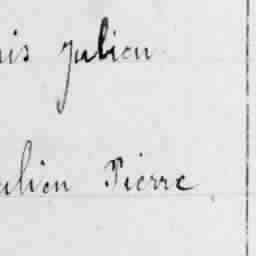 is Julien
ulien Pierre